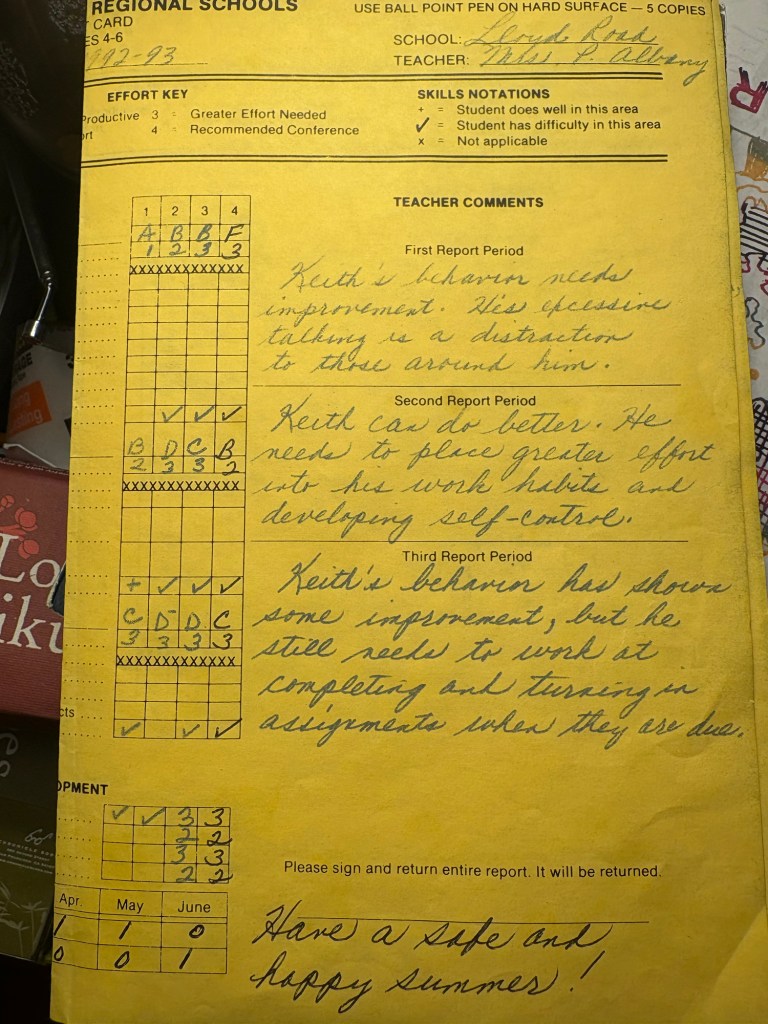 REGIONAL SCHOOLS
USE BALL POINT PEN ON HARD SURFACE — 5 COPIES
CARD
ES 4-6
SCHOOL: Lloyd Road
992-93
TEACHER: Miss P. Albany
EFFORT KEY
SKILLS NOTATIONS
Productive 3 = Greater Effort Needed
+ = Student does well in this area
rt 4 = Recommended Conference
✓ = Student has difficulty in this area
x = Not applicable
TEACHER COMMENTS
1 2 3 4
A B B F
1 2 3 3
XXXXXXXXXXXXXXXX
First Report Period
Keith's behavior needs
improvement. His excessive
talking is a distraction
to those around him.
✓ ✓ ✓
B D C B
2 3 3 2
XXXXXXXXXXXXXXXX
Second Report Period
Keith can do better. He
needs to place greater effort
into his work habits and
developing self-control.
+ ✓ ✓ ✓
C D- D C
3 3 3 3
XXXXXXXXXXXXXXXX
cts
✓ ✓ ✓
Third Report Period
Keith's behavior has shown
some improvement, but he
still needs to work at
completing and turning in
assignments when they are due.
OPMENT
✓ ✓ 3 3
2 2
3 3
2 2
Please sign and return entire report. It will be returned.
Apr. May June
1 1 0
0 0 1
Have a safe and
happy summer!
Lo
iku